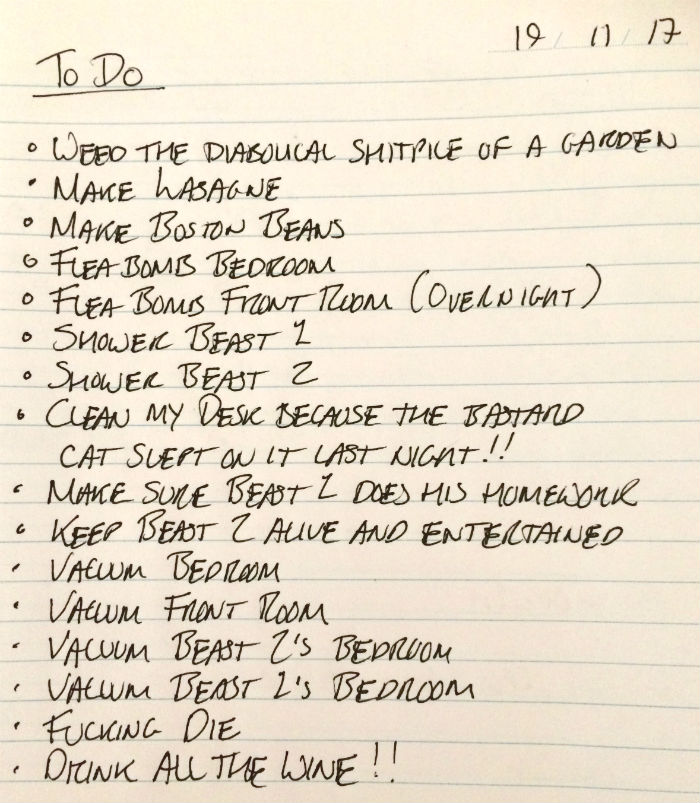 19 / 11 / 17
To Do
• WEED THE DIABOLICAL SHITPILE OF A GARDEN
• MAKE LASAGNE
• MAKE BOSTON BEANS
• FLEA BOMB BEDROOM
• FLEA BOMB FRONT ROOM (OVERNIGHT)
• SHOWER BEAST 1
• SHOWER BEAST 2
• CLEAN MY DESK BECAUSE THE BASTARD
CAT SLEPT ON IT LAST NIGHT!!
• MAKE SURE BEAST 1 DOES HIS HOMEWORK
• KEEP BEAST 2 ALIVE AND ENTERTAINED
• VACUUM BEDROOM
• VACUUM FRONT ROOM
• VACUUM BEAST 2'S BEDROOM
• VACUUM BEAST 1'S BEDROOM
• FUCKING DIE
• DRINK ALL THE WINE!!